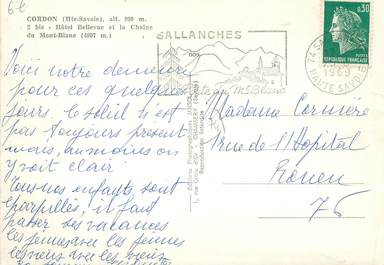 6€
CORDON (Hte-Savoie), alt. 900 m.
2 bis - Hôtel Bellevue et la Chaîne
du Mont-Blanc (4807 m.)
SALLANCHES
Mt Blanc
74 SA
1969
HAUTE SAVOIE
0,30
Voici notre demeure
pour ces quelques
jours. Le soleil n'est
pas toujours présent
mais, au moins on
y voit clair.
Tous nos enfants sont
éparpillés, il faut
passer ses vacances
les jeunes avec les jeunes
les vieux avec les vieux
Madame Cornière
1 rue de l'Hôpital
Rouen
76